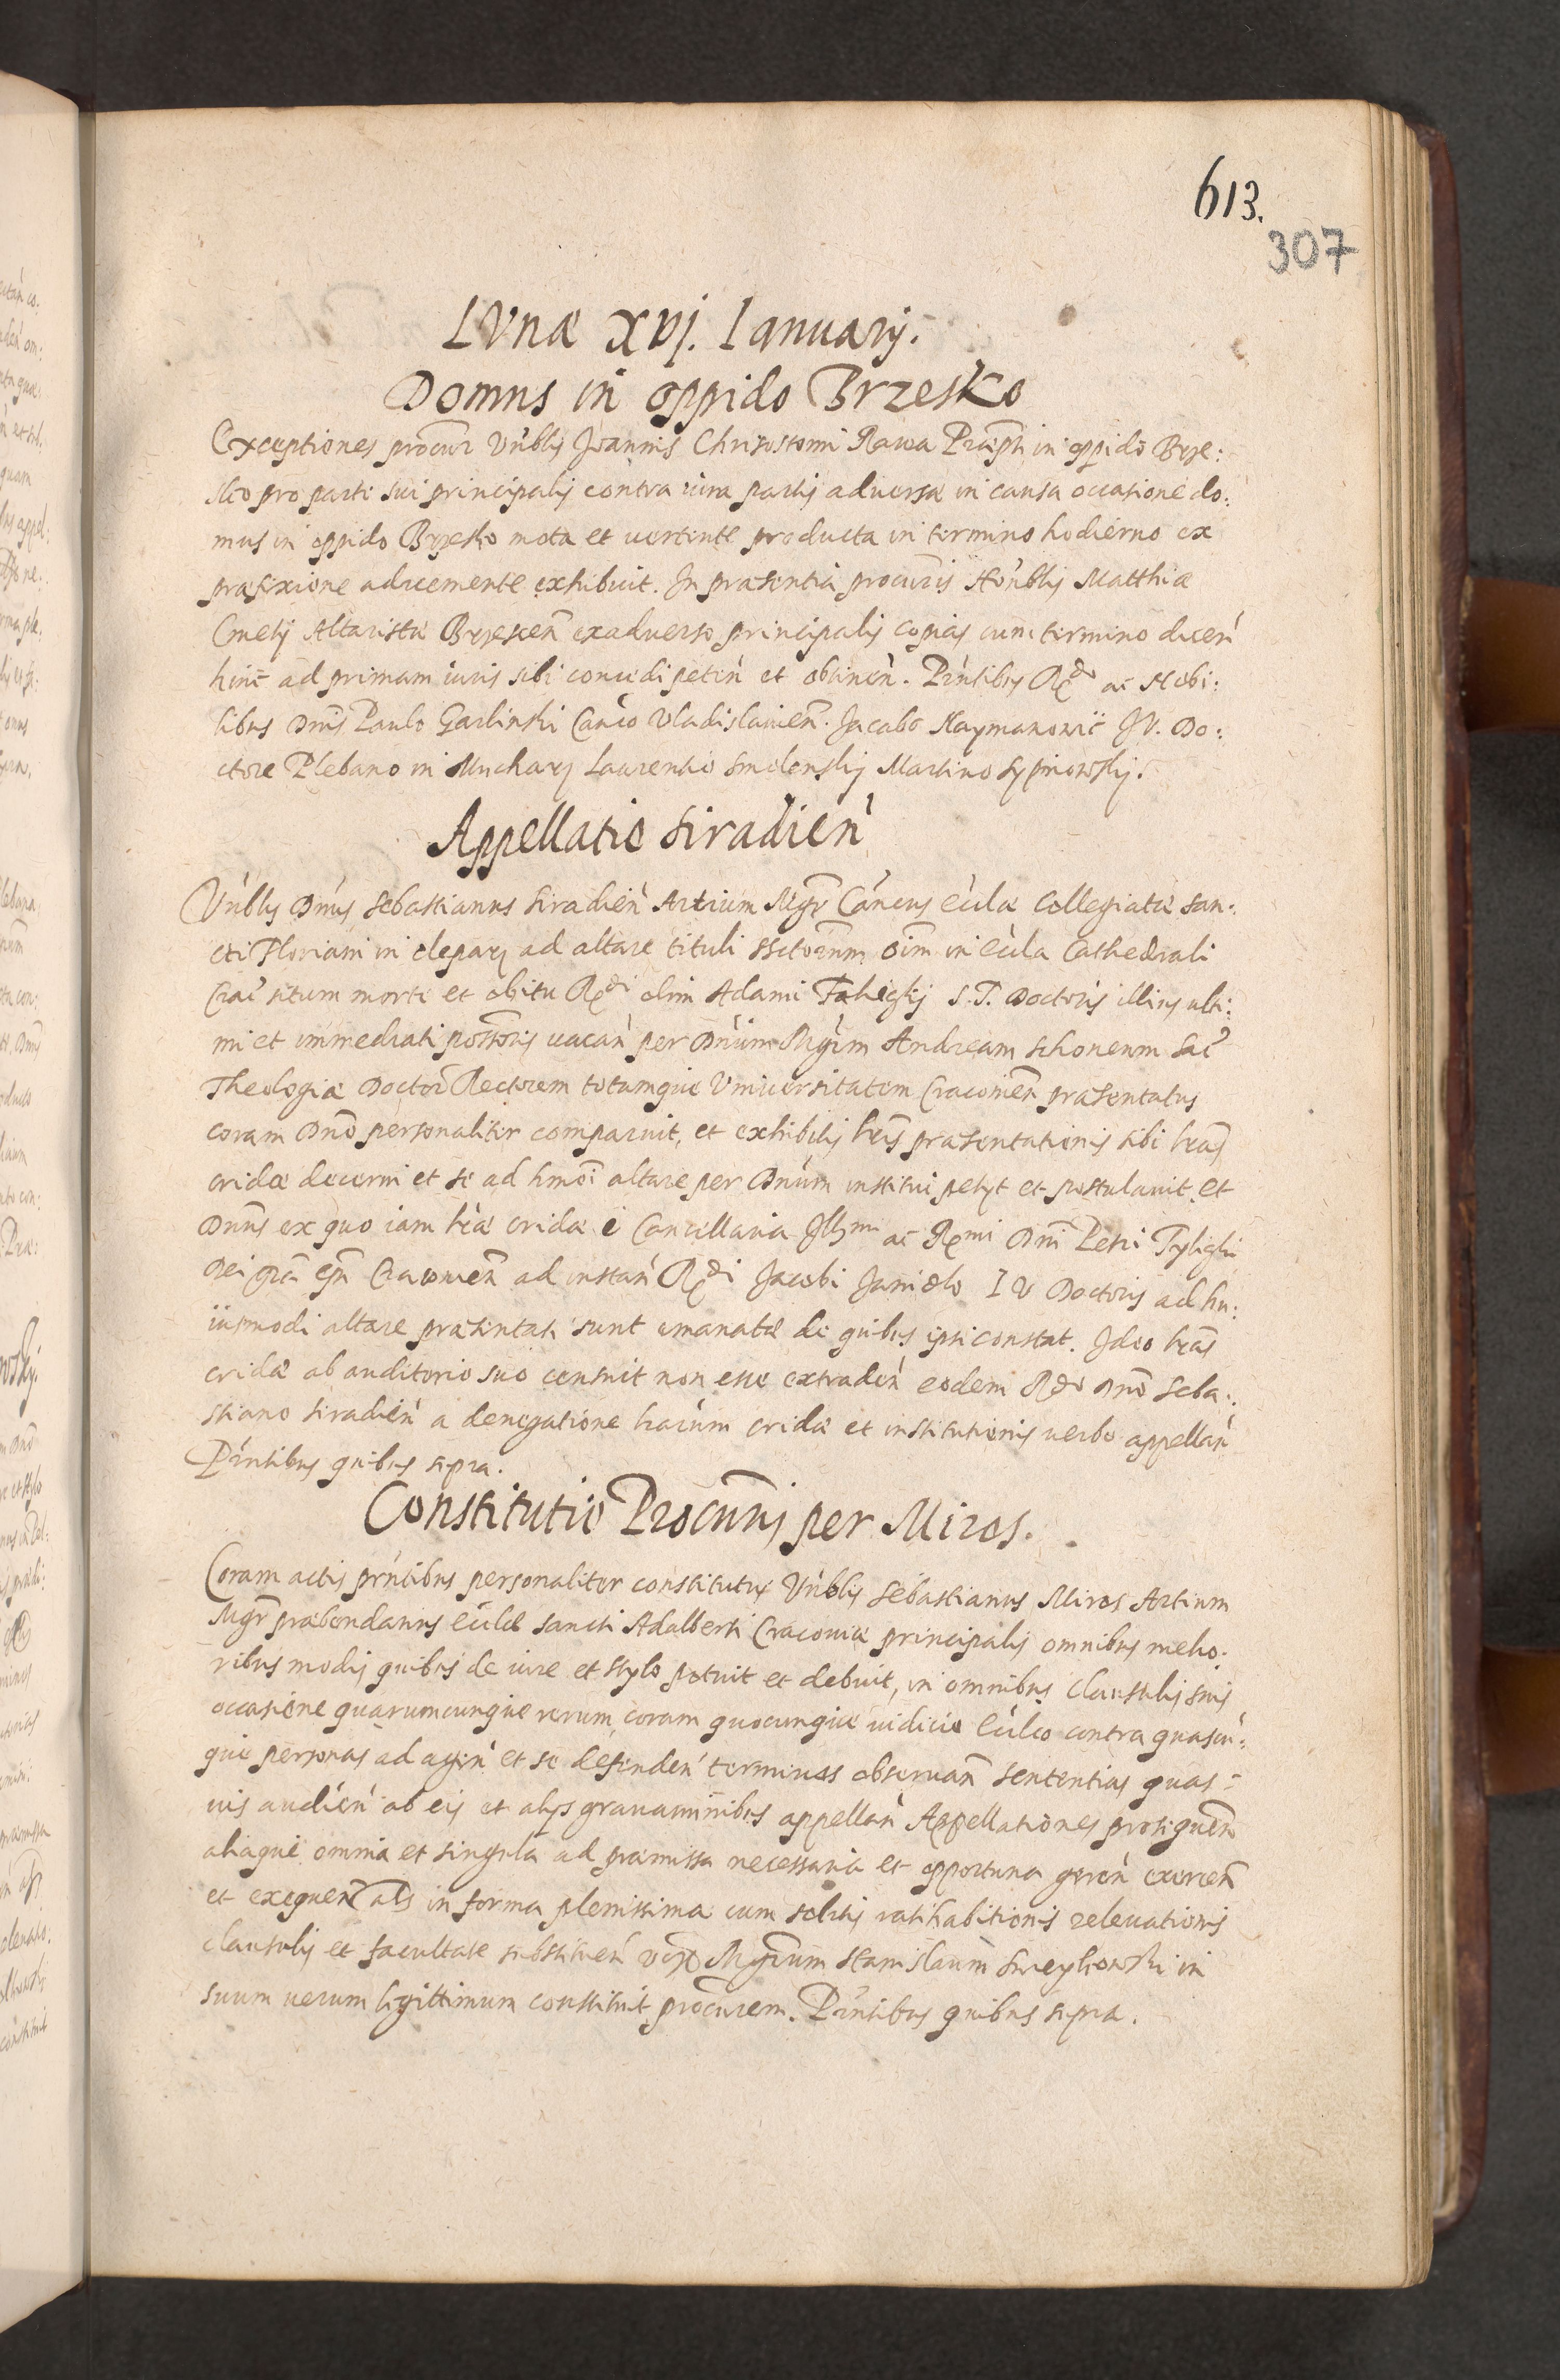 613.
307
LVnæ XVj. Ianuarij.
Domus in oppido Brzesko
Exceptiones procur Vnblis Joannis Chrisostomi Rawa Præpti in oppido Brze:
sko pro parte sui principalis contra iura partis aduersæ in causa occasione do:
mus in oppido Brzesko mota et uertente producta in termino hodierno ex
præfixione adueniente exhibuit. In præsentia procuris Honblis Matthiæ
Altaristæ Brzescen exaduerso principalis copias cum termino dicen
hinc ad primam iuris sibi concedi peten et obtinen. Pntibus Rdo ac Nobi:
libus Dnis Paulo Garlinski Canco Vladislauien. Jacobo Naymanowic JV. Do:
ctore Plebano in Mucharz Laurentio Smolenskij Martino
Appellatio Siradien
Vnblis Dnus Sebastianus Siradien Artium Mgr Cancus Eclæ Collegiatæ San:
cti Floriani in Clepary ad altare tituli Ssctorum oim in Ecla Cathedrali
Crac situm morte et obitu Rdi olim Adami S. T. Doctoris illius ulti:
mi et immediati possoris uacan per Dnum Mgrm Andream Schoneum Sac
Theologiæ Doctor Rectorem totamque Vniuersitatem Cracouien præsentatus
coram Dno personaliter comparuit, et exhibitis lris præsentationis sibi lras
cridæ decerni et se ad hmoi altare per Dnum institui petyt et postulauit. Et
Dnus ex quo iam lræ cridæ è Cancellaria Illmi ac Rmi Dni Petri Tylicki
Dei gra Epi Cracouien ad instan Rdi Jacobi Janidlo I V Doctoris ad hu:
iusmodi altare præsentati sunt emanatæ de quibus ipsi constat. Ideo lras
cridæ ab auditorio suo censuit non esse extraden eodem Rdo Dno Seba:
stiano Siradien a denegatione lrarum cridæ et institutionis uerbo appellan
Pntibus quibus supra.
Constitutio Procuris per Miros.
Coram actis pntibus personaliter constitutus Vnblis Sebastianus Miros Artium
Mgr præbendarius Eclæ Sancti Adalberti Cracouiæ principalis omnibus melio:
ribus modis quibus de iure et stylo potuit et debuit, in omnibus clausulis suis
occasione quarumcunque rerum, coram quocunque iudicio Eclco contra quascun:
que personas ad agen et se defenden terminos obseruan sententias quas=
uis audien ab eis et alijs grauaminibus appellan Appellationes prosequen
aliaque omnia et singula ad præmissa necessaria et opportuna geren exercen
et exequen als in forma plenissima cum solitis ratihabitionis releuationis
clausulis et facultate substituen Mgrum Stanislaum in
suum uerum legittimum constituit procurem. Pntibus quibus supra.